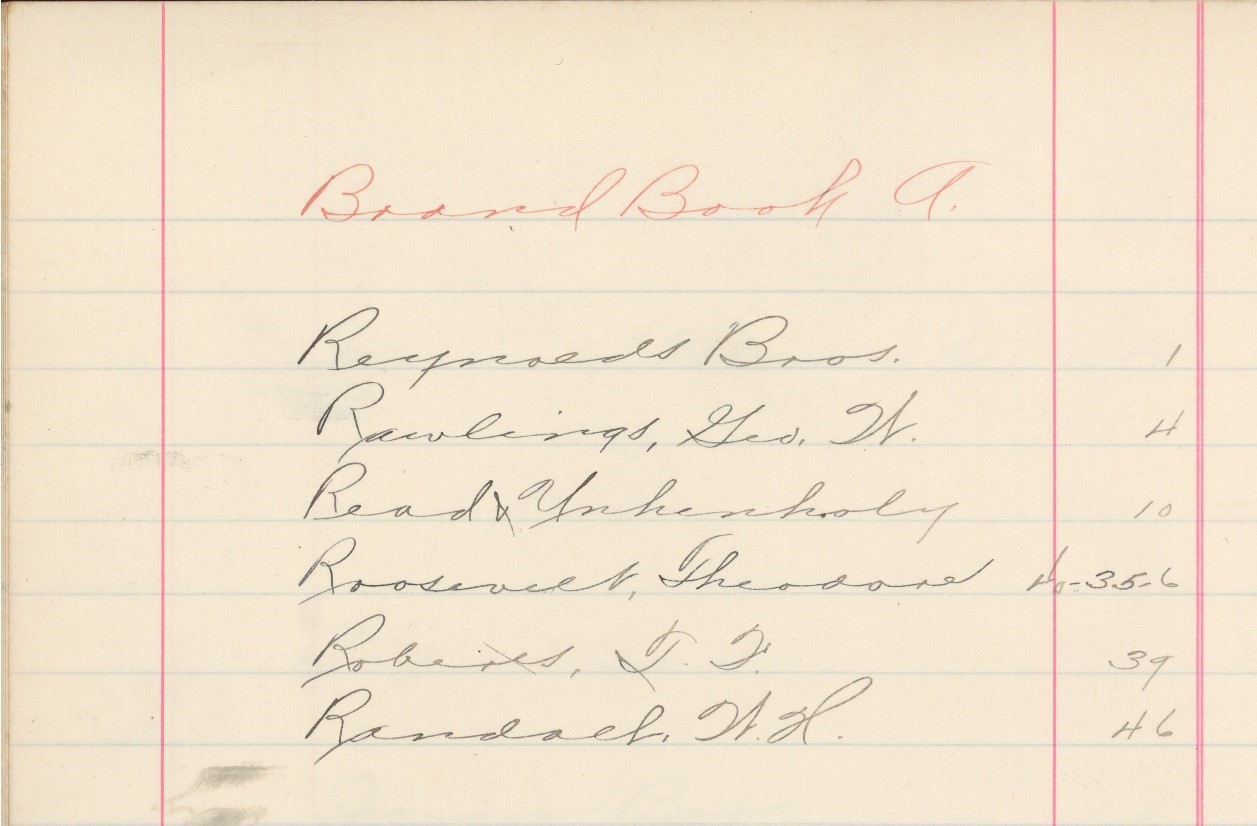 Brand Book A.
Reynolds Bros. 1
Rawlings, Geo. W. 4
Read & 10
Roosevelt, Theodore -35-6
Roberts, J. F. 39
Randall, W. H. 46